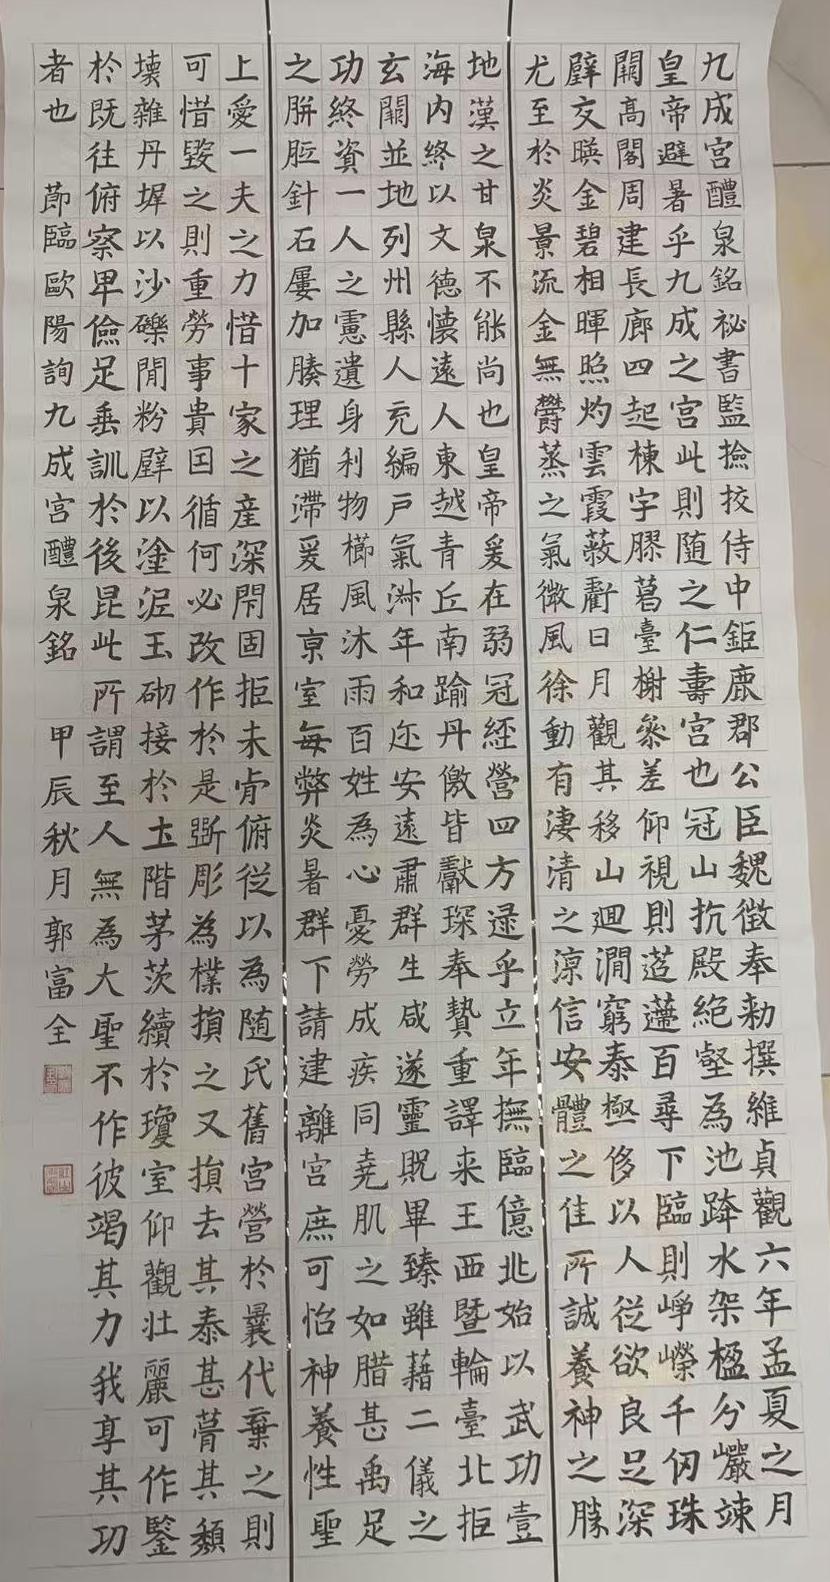 九成宮醴泉銘祕書監撿挍侍中鉅鹿郡公臣魏徵奉勅撰維貞觀六年孟夏之月
皇帝避暑乎九成之宮此則随之仁壽宮也冠山抗殿絕壑為池跨水架楹分巖竦
闕高閣周建長廊四起棟宇膠葛臺榭參差仰視則迢遰百尋下臨則崢嶸千仞珠
壁交暎金碧相暉照灼雲霞蔽虧日月觀其移山迴澗窮泰極侈以人従欲良足深
尤至於炎景流金無鬱蒸之氣微風徐動有淒清之涼信安體之佳所誠養神之勝
地漢之甘泉不能尚也皇帝爰在弱冠經營四方逯乎立年撫臨億兆始以武功壹
海内終以文德懷遠人東越青丘南踰丹儌皆獻琛奉贄重譯来王西暨輪臺北拒
玄闕並地列州縣人充編戶氣淋年和迩安遠肅群生咸遂靈貺畢臻雖藉二儀之
功終資一人之慮遺身利物櫛風沐雨百姓為心憂勞成疾同堯肌之如腊甚禹足
之胼胝針石屢加腠理猶滯爰居京室每弊炎暑群下請建離宮庶可怡神養性聖
上愛一夫之力惜十家之產深閇固拒未肯俯従以為随氏舊宮營於曩代棄之則
可惜毀之則重勞事貴因循何必改作於是斲彫為樸損之又損去其泰甚葺其頹
壞雜丹墀以沙礫間粉壁以塗泥玉砌接於土階茅茨續於瓊室仰觀壯麗可作鑒
於既往俯察卑儉足垂訓於後昆此所謂至人無為大聖不作彼竭其力我享其功
者也 節臨歐陽詢九成宮醴泉銘 甲辰秋月郭富全